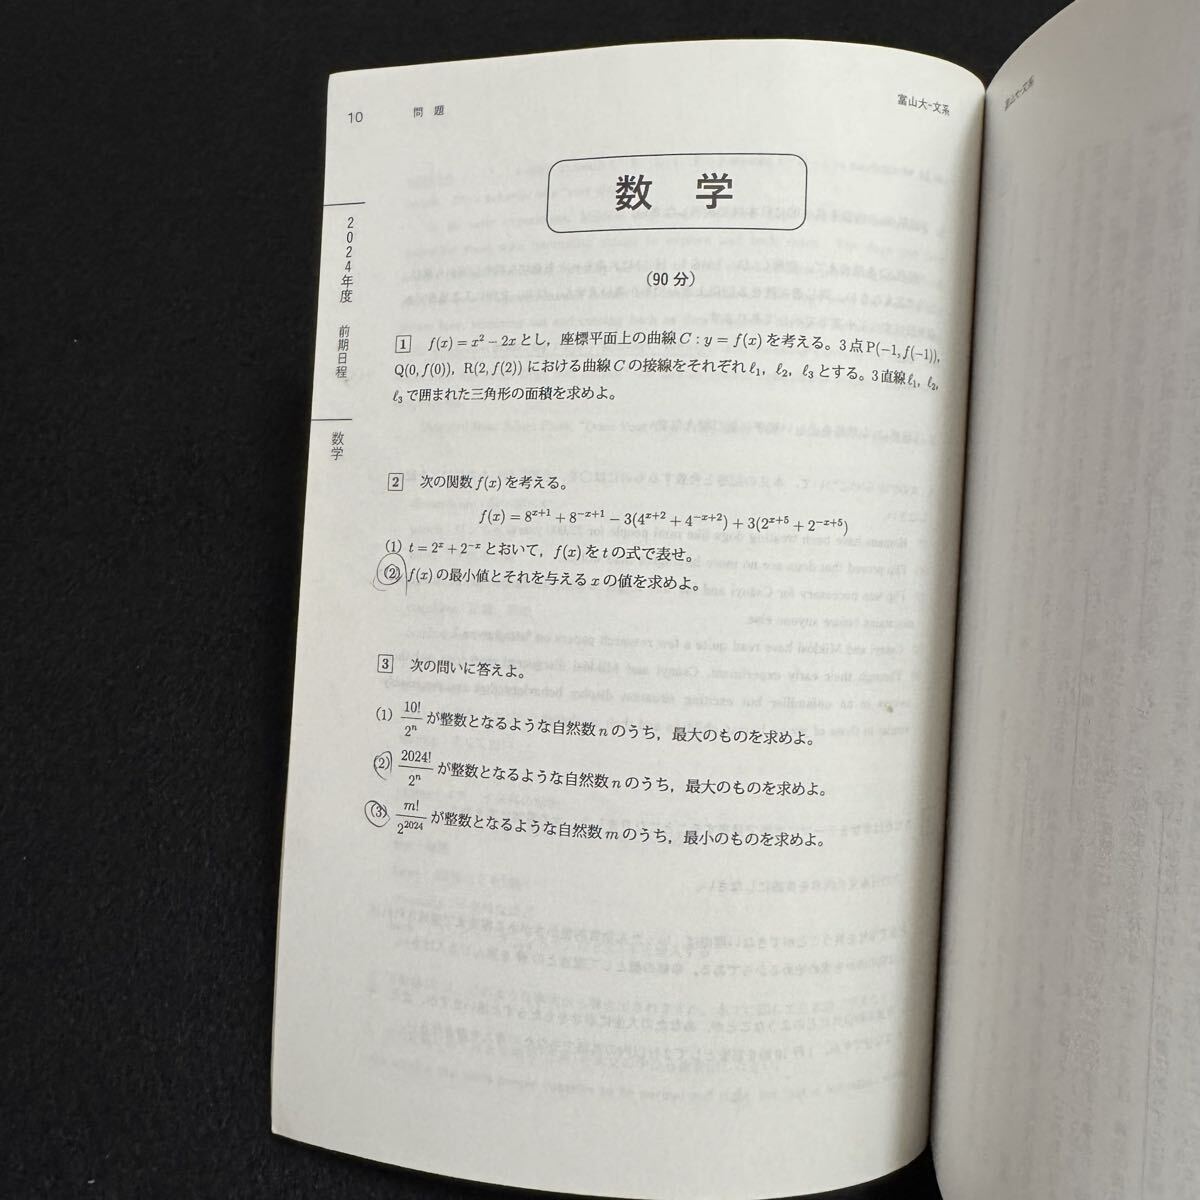 10 問題 富山大-文系
富山大-文系
2024年度 前期日程
数学
数 学
(90 分)
1 f(x) = x² − 2x とし，座標平面上の曲線 C : y = f(x) を考える。3 点 P(−1, f(−1)),
Q(0, f(0)), R(2, f(2)) における曲線 C の接線をそれぞれ ℓ₁, ℓ₂, ℓ₃ とする。3 直線 ℓ₁, ℓ₂,
ℓ₃ で囲まれた三角形の面積を求めよ。
2 次の関数 f(x) を考える。
f(x) = 8^{x+1} + 8^{−x+1} − 3(4^{x+2} + 4^{−x+2}) + 3(2^{x+5} + 2^{−x+5})
(1) t = 2^x + 2^{−x} とおいて，f(x) を t の式で表せ。
(2) f(x) の最小値とそれを与える x の値を求めよ。
3 次の問いに答えよ。
(1) 10!/2^n が整数となるような自然数 n のうち，最大のものを求めよ。
(2) 2024!/2^n が整数となるような自然数 n のうち，最大のものを求めよ。
(3) m!/2^{2024} が整数となるような自然数 m のうち，最小のものを求めよ。